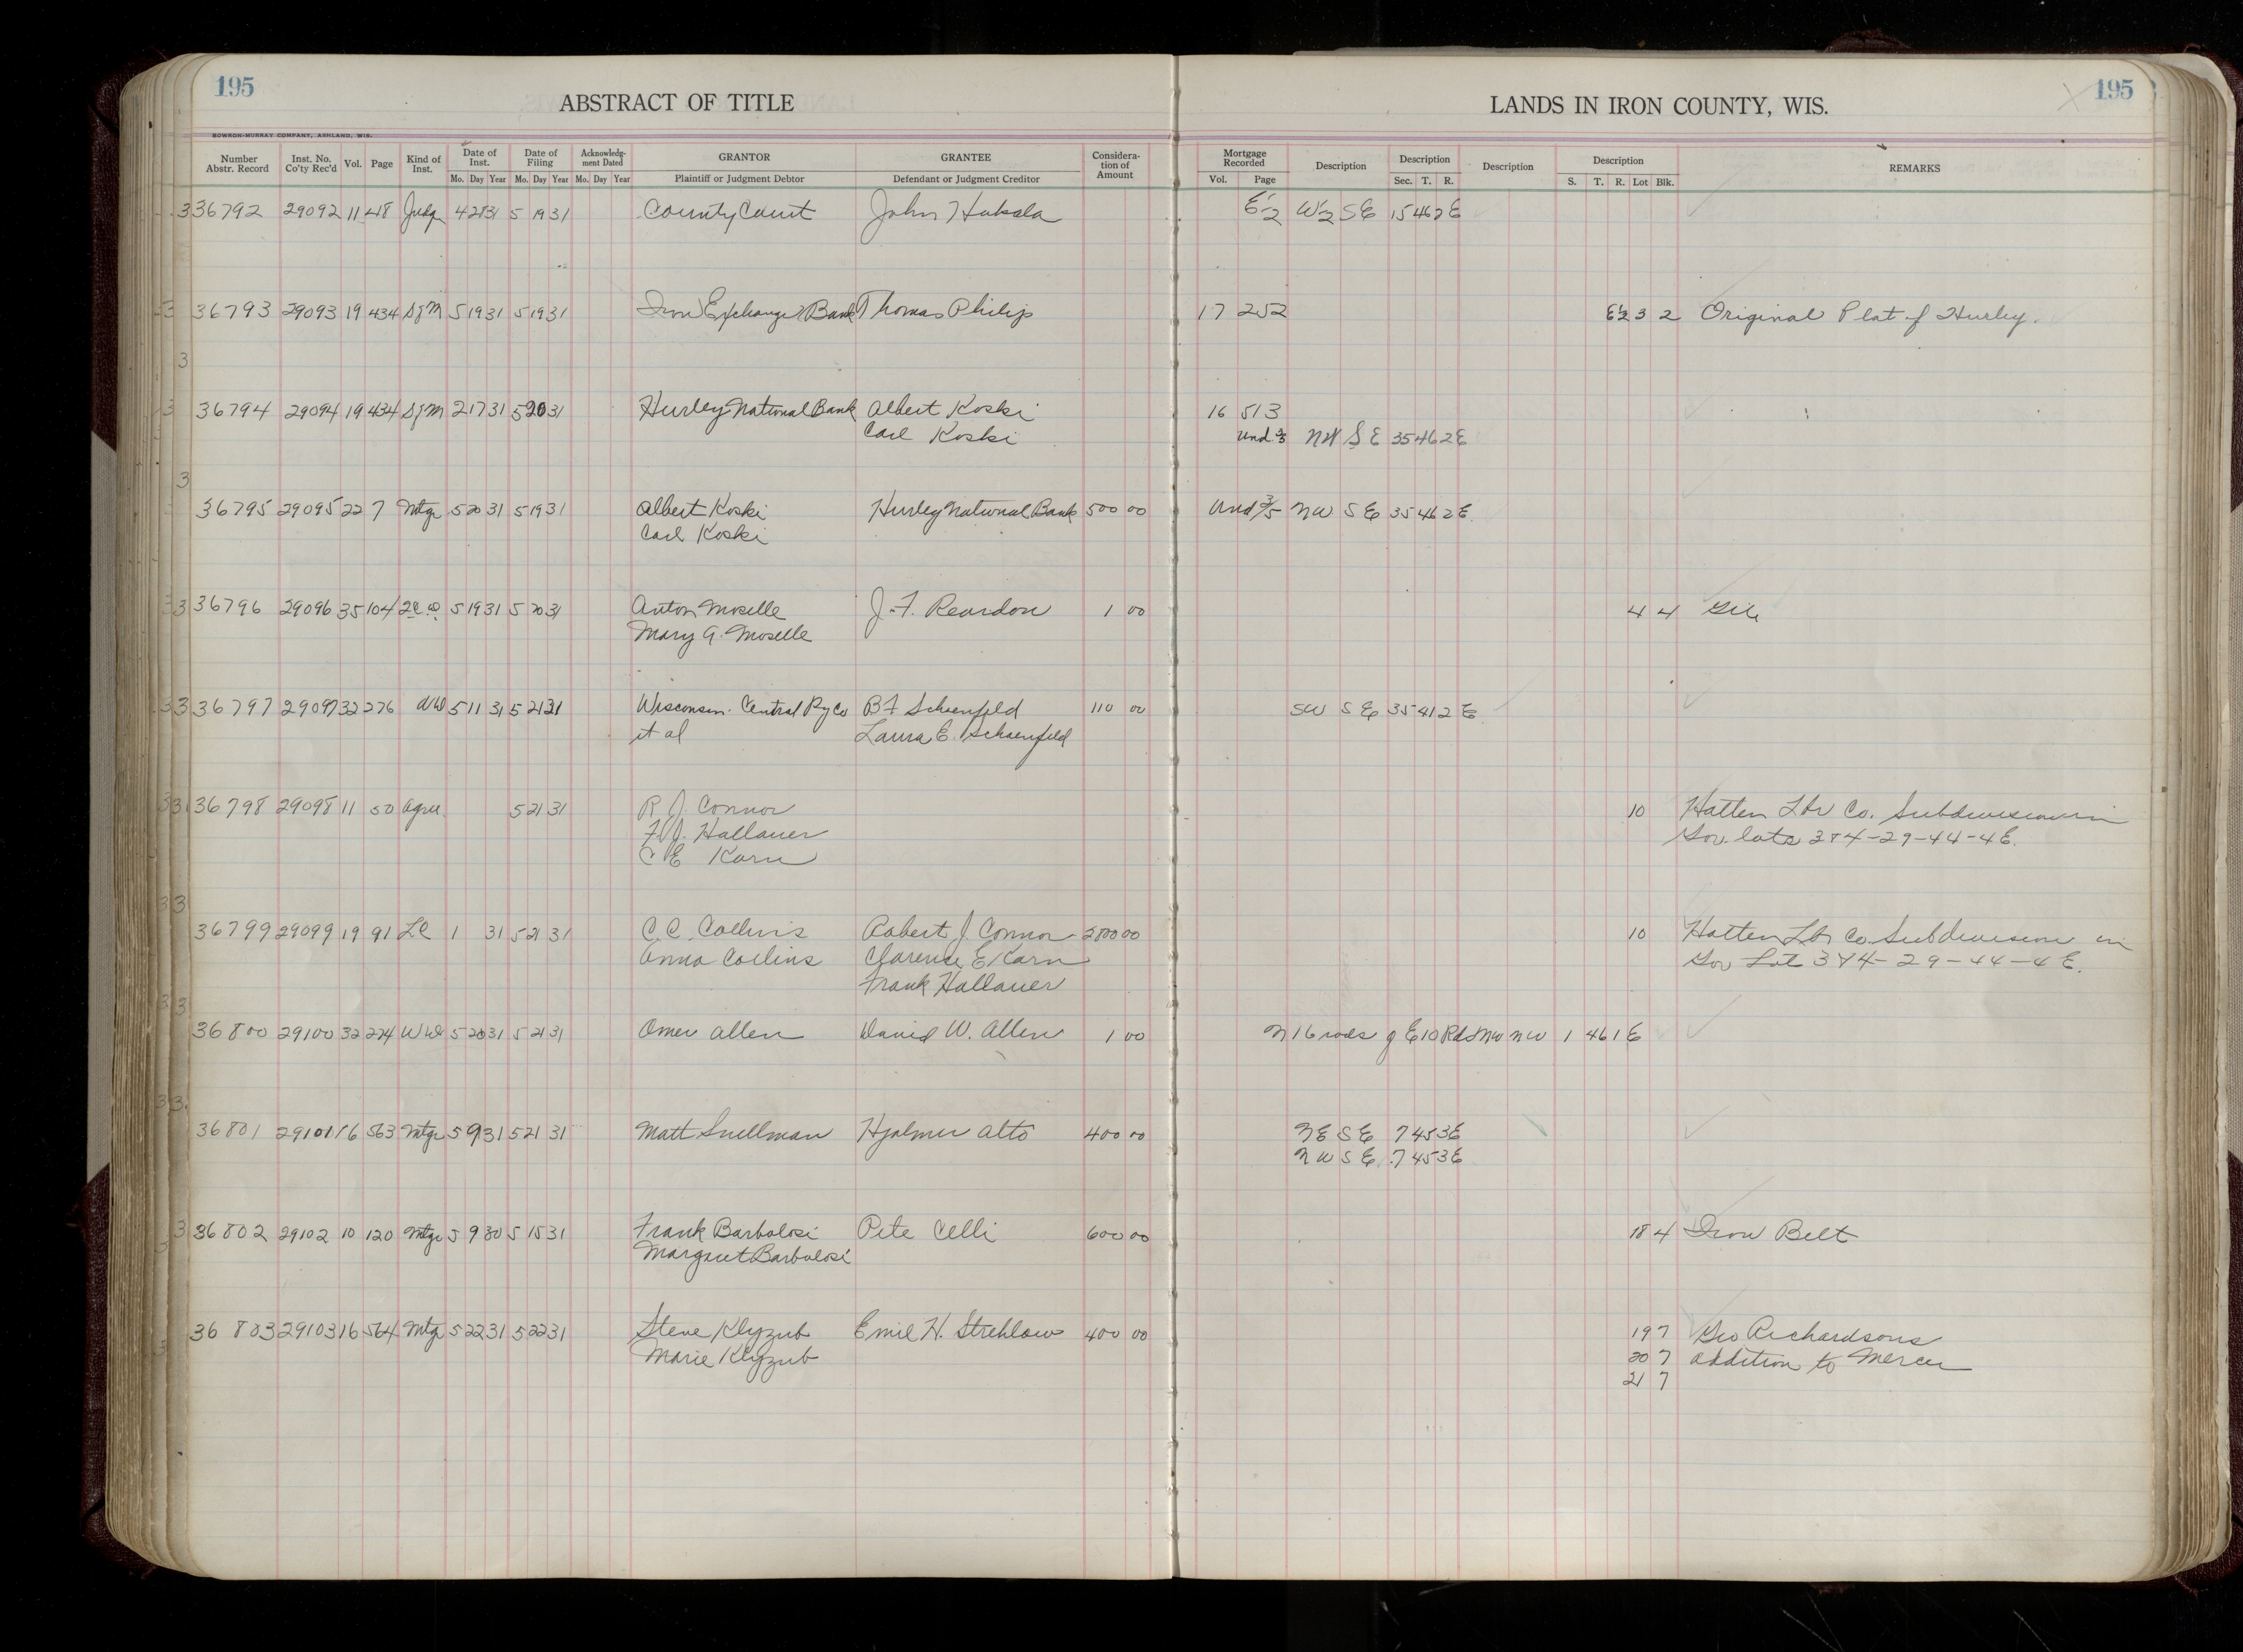 195
ABSTRACT OF TITLE
LANDS IN IRON COUNTY, WIS.
195
BOWRON-MURRAY COMPANY, ASHLAND, WIS.
Number Abstr. Record Inst. No. Co'ty Rec'd Vol. Page Kind of Inst. Date of Inst. Date of Filing Acknowledg-ment Dated GRANTOR GRANTEE Considera-tion of Amount Mortgage Recorded Description Description Description Description REMARKS
Mo. Day Year Mo. Day Year Mo. Day Year Plaintiff or Judgment Debtor Defendant or Judgment Creditor Vol. Page Sec. T. R. S. T. R. Lot Blk.
36792 29092 11 48 Judg 4 28 31 5 19 31 County Court John Hukala E½ W½ SE 15 46 2E
36793 29093 19 434 S of M 5 19 31 5 19 31 Iron Exchange Bank Thomas Philip 17 252 E½ 3 2 Original Plat of Hurley.
36794 29094 19 434 S of M 2 17 31 5 20 31 Hurley National Bank Albert Koski 16 513
Carl Koski Und. ⅗ NW SE 35 46 2E
36795 29095 22 7 Mtge 5 20 31 5 19 31 Albert Koski Hurley National Bank 500 00 Und ⅗ NW SE 35 46 2E.
Carl Koski
36796 29096 35 104 2 C.D. 5 19 31 5 20 31 Anton Moselle J. F. Reardon 1 00 4 4 Gile
Mary A. Moselle
36797 29097 32 276 5 11 31 5 21 31 Wisconsin Central Ry Co B F Schoenfeld 110 00 SW SE 35 41 2 E
et al Laura E. Schoenfeld
36798 29098 11 50 Agre 5 21 31 R J. Connor 10 Hatten Lbr Co. Subdivision in
F. J. Hallauer Gov. lots 3&4-29-44-4E.
C E Karn
36799 29099 19 91 LC 1 31 5 21 31 C. C. Collins Robert J. Connor 2800 00 10 Hatten Lbr Co Subdivision in
Anna Collins Clarence E Karn Gov Lot 3&4-29-44-4E.
Frank Hallauer
36800 29100 32 274 WD 5 20 31 5 21 31 Omer Allen David W. Allen 1 00 N 16 rods of E 10 Rds NW NW 1 46 1E
36801 29101 16 563 Mtge 5 9 31 5 21 31 Matt Snellman Hjalmer Alto 400 00 NE SE 7 45 3E
NW SE 7 45 3E
36802 29102 10 120 Mtge 5 9 30 5 15 31 Frank Barbalosi Pete Celli 600 00 18 4 Iron Belt
Margaret Barbalosi
36803 29103 16 564 Mtge 5 22 31 5 22 31 Steve Klyzub Emil H. Strehlow 400 00 19 7 Geo Richardsons
Marie Klyzub 20 7 addition to Mercer
21 7